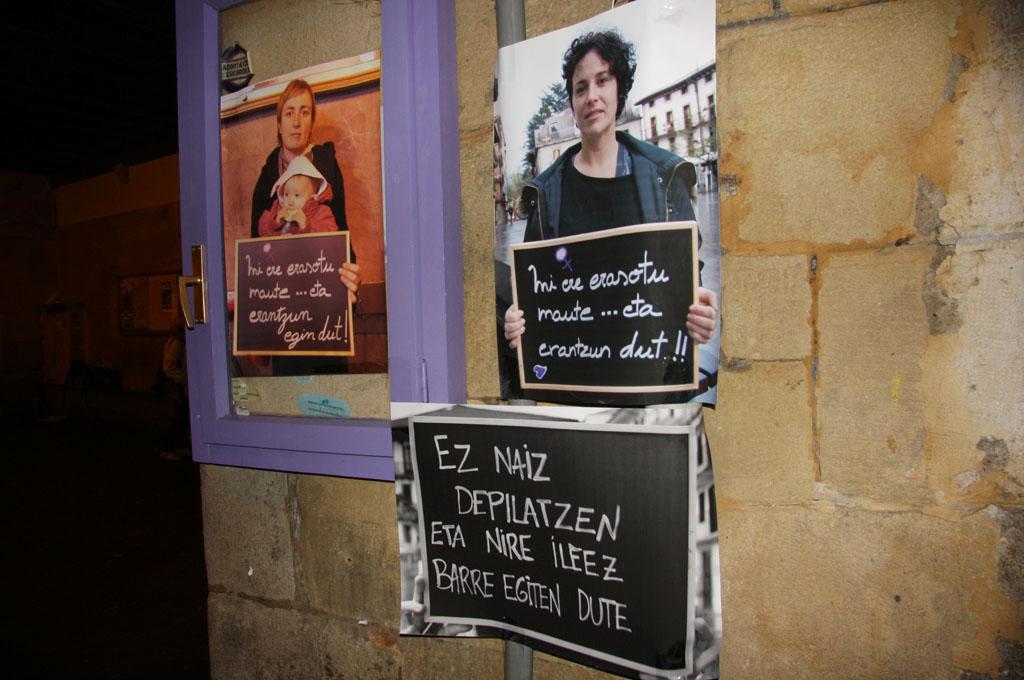 Ni ere erasotu
naute ... eta
erantzun
egin dut!
Ni ere erasotu
naute ... eta
erantzun dut..!!
EZ NAIZ
DEPILATZEN
ETA NIRE İLEEZ
BARRE EGITEN DUTE